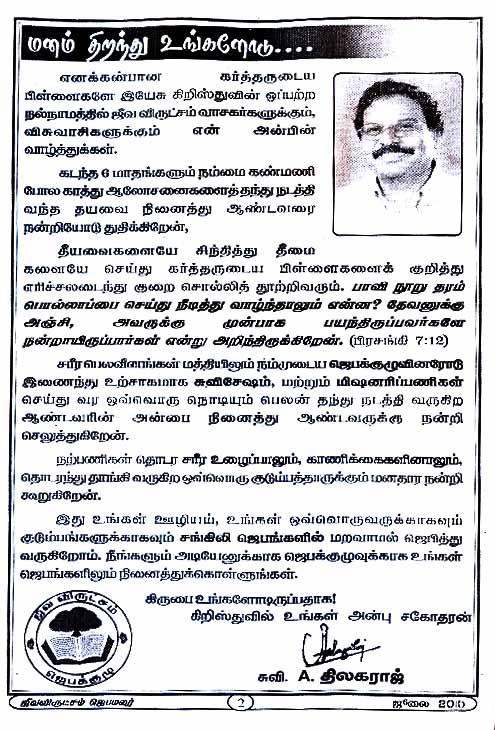 மனம் திறந்து உங்களோடு....
எனக்கன்பான கர்த்தருடைய
பிள்ளைகளே இயேசு கிறிஸ்துவின் ஒப்பற்ற
நல்நாமத்தில் ஜீவ விருட்சம் வாசகர்களுக்கும்,
விசுவாசிகளுக்கும் என் அன்பின்
வாழ்த்துக்கள்.
கடந்த 6 மாதங்களும் நம்மை கண்மணி
போல காத்து ஆலோசனைகளைத் தந்து நடத்தி
வந்த தயவை நினைத்து ஆண்டவரை
நன்றியோடு துதிக்கிறேன்,
தீயவைகளையே சிந்தித்து தீமை
களையே செய்து கர்த்தருடைய பிள்ளைகளைக் குறித்து
எரிச்சலடைந்து குறை சொல்லித் தூற்றிவரும். பாவி நூறு தரம்
பொல்லாப்பை செய்து நீடித்து வாழ்ந்தாலும் என்ன? தேவனுக்கு
அஞ்சி, அவருக்கு முன்பாக பயந்திருப்பவர்களே
நன்றாயிருப்பார்கள் என்று அறிந்திருக்கிறேன். (பிரசங்கி 7:12)
சரீர பெலவீனங்கள் மத்தியிலும் நம்முடைய ஜெபக்குழுவினரோடு
இணைந்து உற்சாகமாக சுவிசேஷம், மற்றும் மிஷனரிப்பணிகள்
செய்து வர ஒவ்வொரு நொடியும் பெலன் தந்து நடத்தி வருகிற
ஆண்டவரின் அன்பை நினைத்து ஆண்டவருக்கு நன்றி
செலுத்துகிறேன்.
நற்பணிகள் தொடர சரீர உழைப்பாலும், காணிக்கைகளினாலும்,
தொடர்ந்து தாங்கி வருகிற ஒவ்வொரு குடும்பத்தாருக்கும் மனதார நன்றி
கூறுகிறேன்.
இது உங்கள் ஊழியம், உங்கள் ஒவ்வொருவருக்காகவும்
குடும்பங்களுக்காகவும் சங்கிலி ஜெபங்களில் மறவாமல் ஜெபித்து
வருகிறோம். நீங்களும் அடியேனுக்காக ஜெபக்குழுவுக்காக உங்கள்
ஜெபங்களிலும் நினைத்துக்கொள்ளுங்கள்.
கிருபை உங்களோடிருப்பதாக!
கிறிஸ்துவில் உங்கள் அன்பு சகோதரன்
ஜீவ விருட்சம்
ஜெபக்குழு
சுவி. A. திலகராஜ்
ஜீவவிருட்சம் ஜெபமலர் 2 ஜூலை 2010